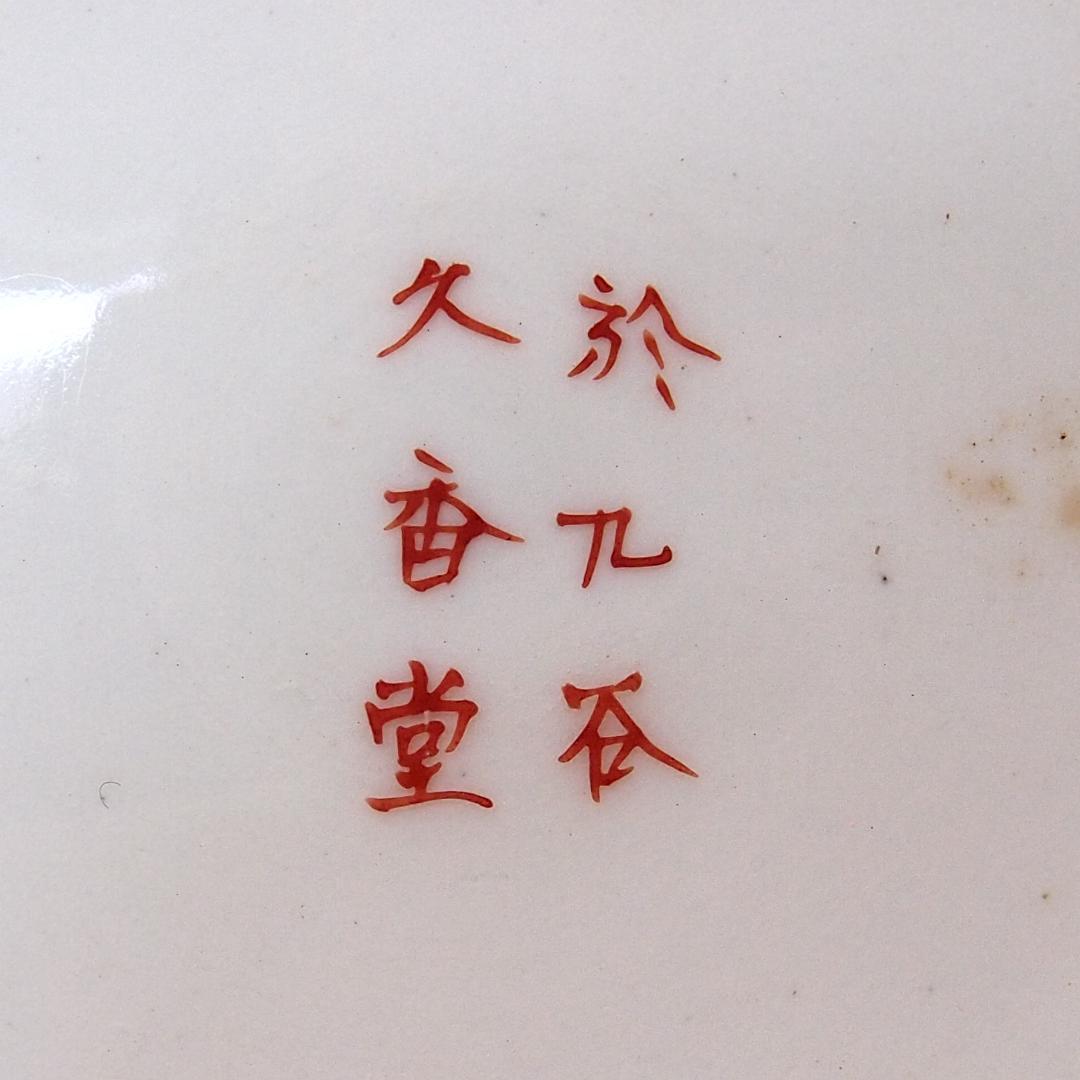 於九谷
久香堂